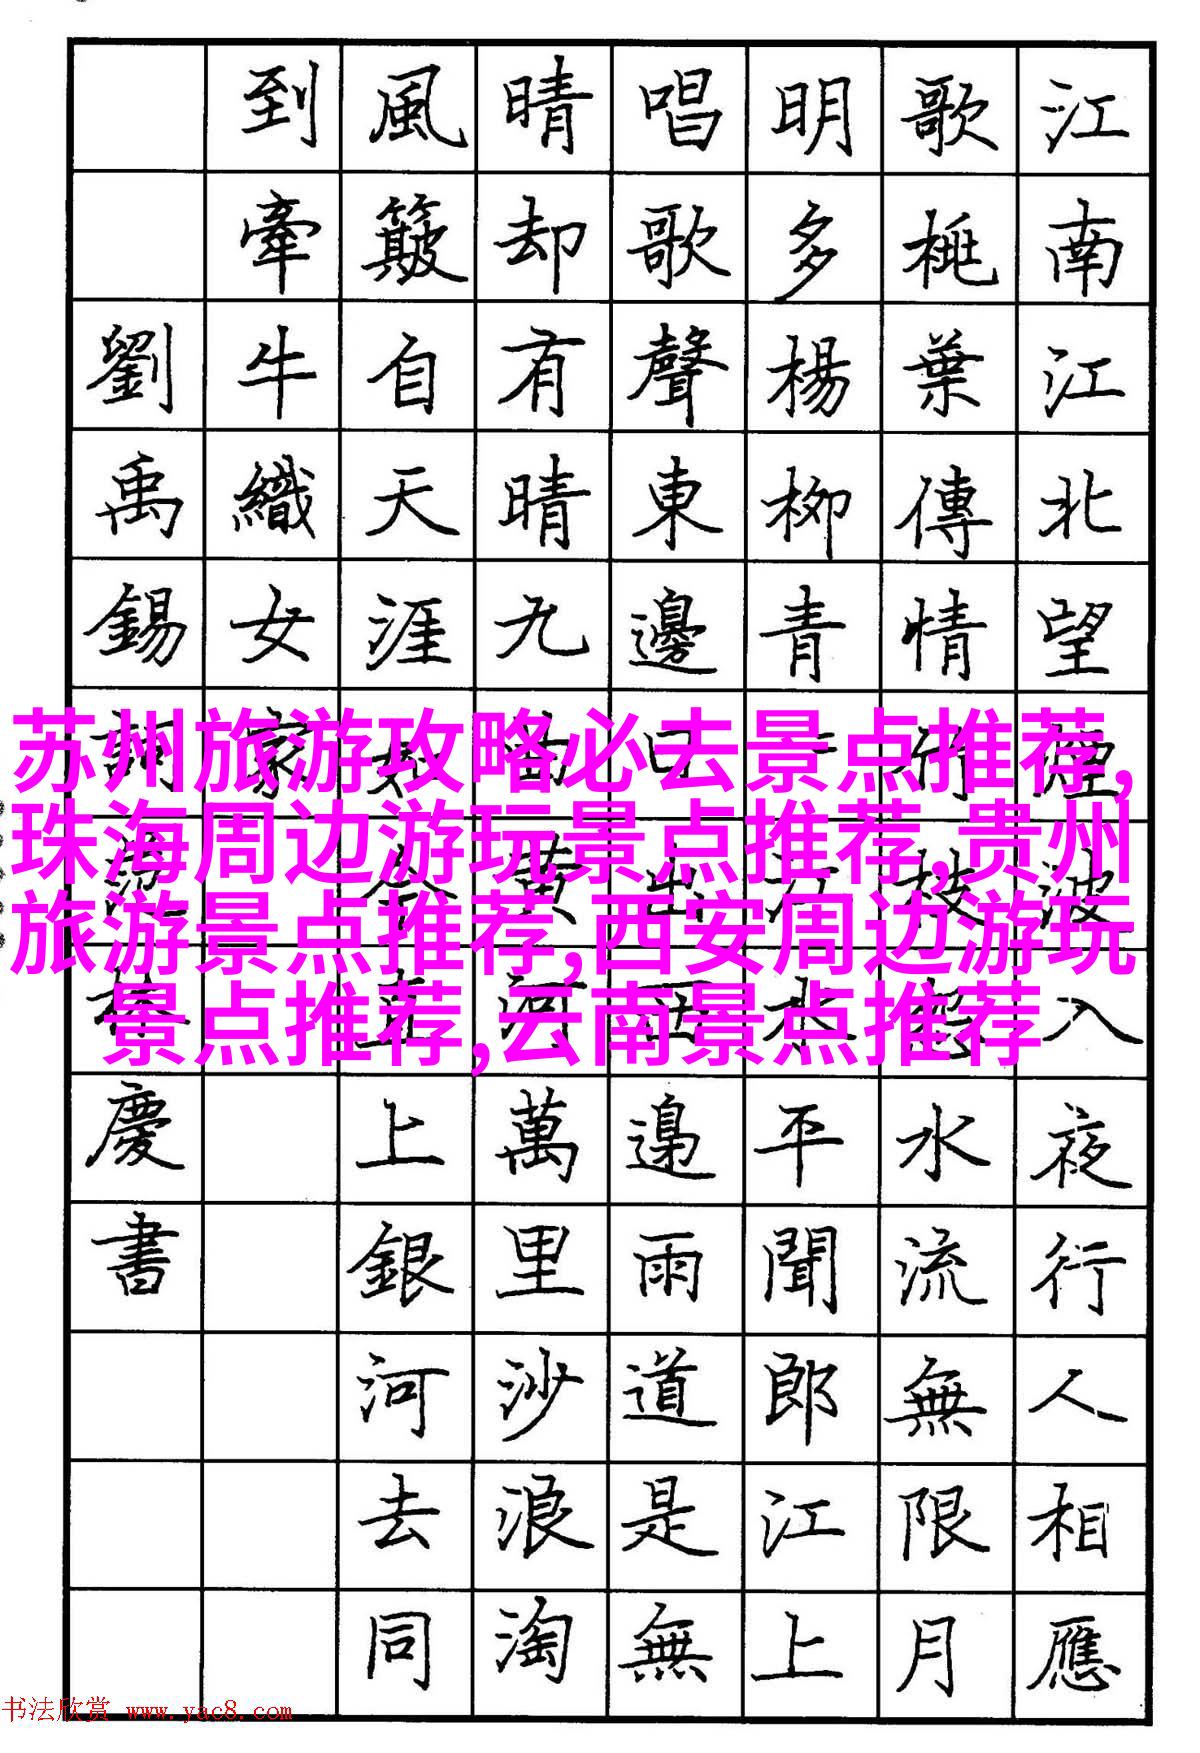 江南江北望煙波入夜行人相應
歌桃葉傳情竹枝怨水流無限月
明多楊柳青青江水平聞郎江上
唱歌聲東邊日出西邊雨道是無
晴却有晴九曲黃河萬里沙浪淘
風簸自天涯如今直上銀河去同
到牽牛織女家
劉禹錫詞慶書
苏州旅游攻略必去景点推荐,
珠海周边游玩景点推荐,贵州
旅游景点推荐,西安周边游玩
景点推荐,云南景点推荐
书法欣赏 www.yac8.com